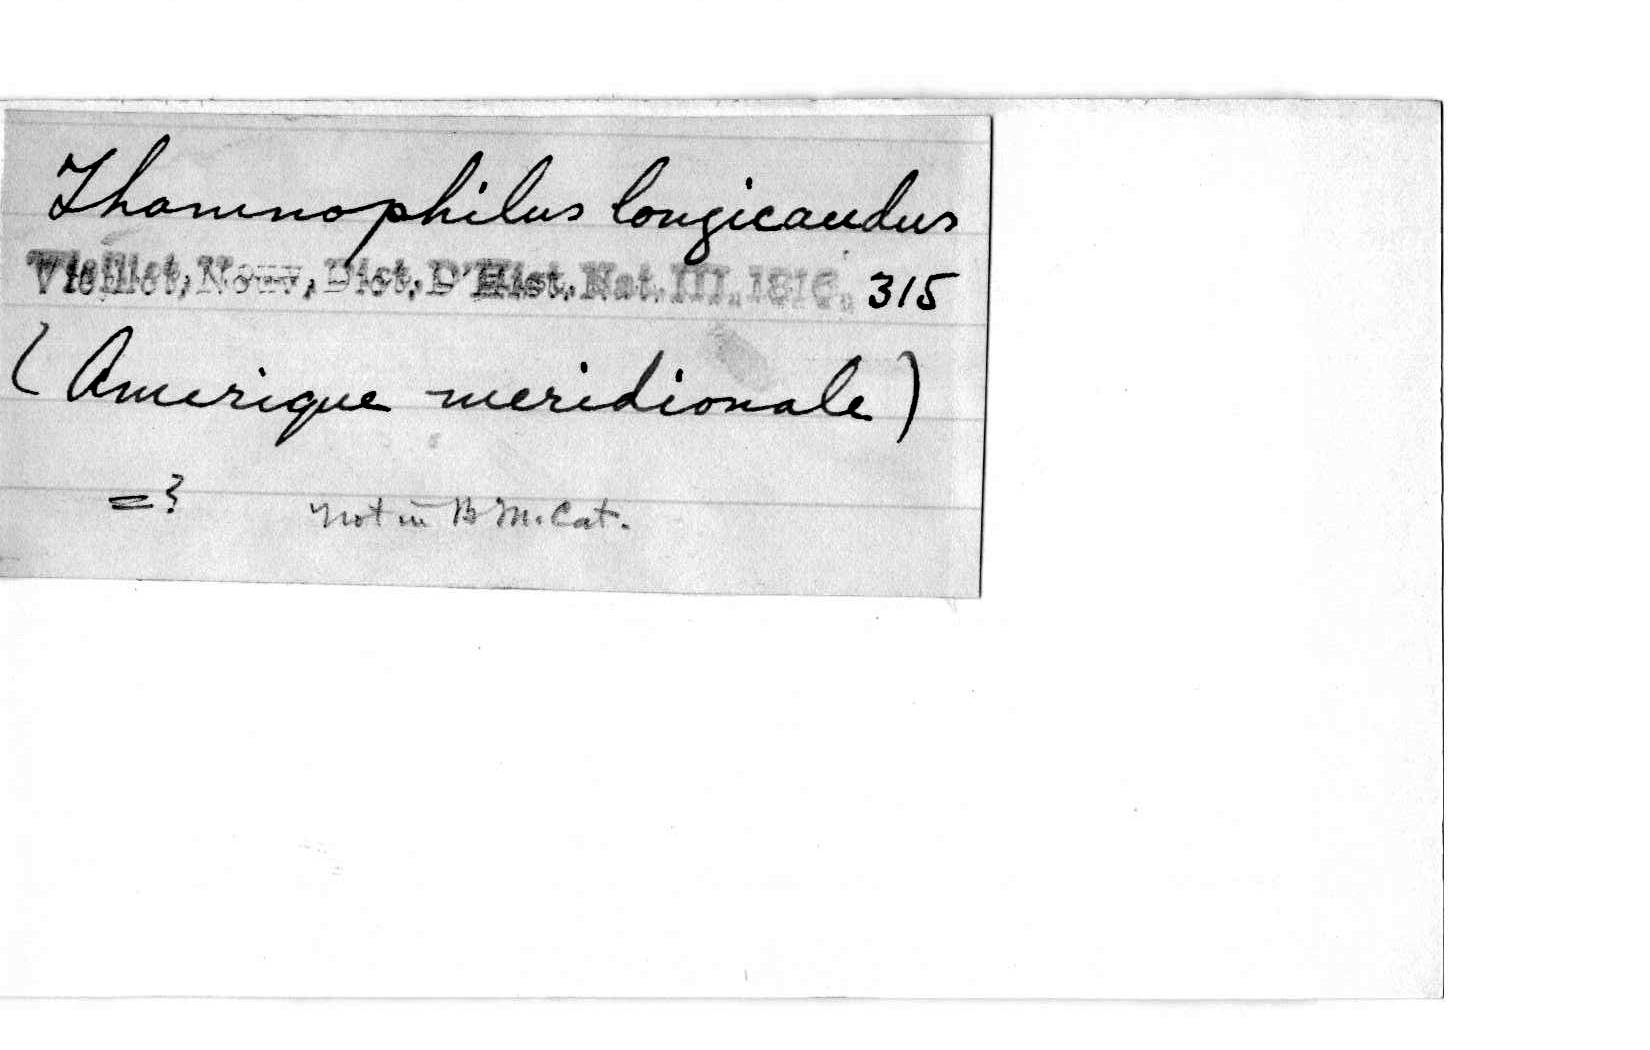 Thamnophilus longicaudus
Vieillot, Nouv, Dict, D'Hist. Nat. III, 1816, 315
(Amerique meridionale)
=? not in B M. Cat.